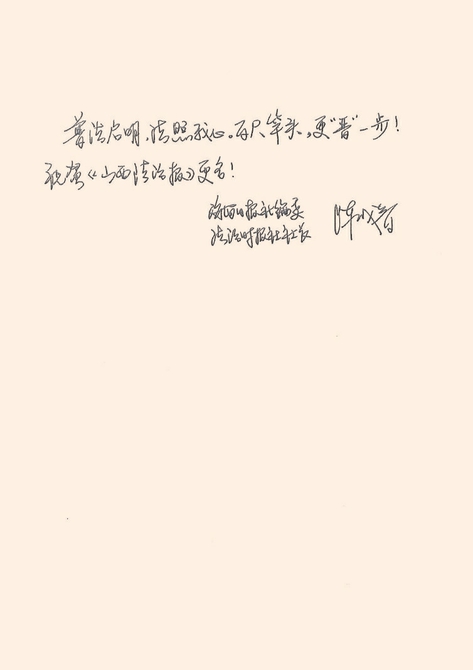 普法启明,法照我心。百尺竿头,更“晋”一步!
祝贺《山西法治报》更名!
海南日报社编委
法治时报社社长